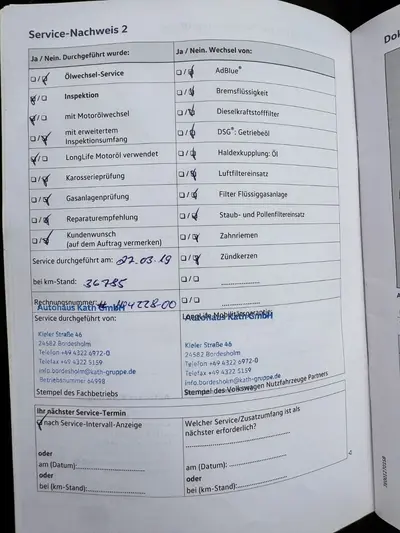 Service-Nachweis 2
Ja / Nein. Durchgeführt wurde:
Ja / Nein. Wechsel von:
Ölwechsel-Service
AdBlue®
Inspektion
Bremsflüssigkeit
mit Motorölwechsel
Dieselkraftstofffilter
mit erweitertem
Inspektionsumfang
DSG®: Getriebeöl
LongLife Motoröl verwendet
Haldexkupplung: Öl
Karosserieprüfung
Luftfiltereinsatz
Gasanlagenprüfung
Filter Flüssiggasanlage
Reparaturempfehlung
Staub- und Pollenfiltereinsatz
Kundenwunsch
(auf dem Auftrag vermerken)
Zahnriemen
Service durchgeführt am: 22.03.19
Zündkerzen
bei km-Stand: 36785
Rechnungsnummer:
Autohaus Kath GmbH
Service durchgeführt von:
Kieler Straße 46
24582 Bordesholm
Telefon +49 4322 6972-0
Telefax +49 4322 5159
info.bordesholm@kath-gruppe.de
Betriebsnummer 64998
Stempel des Fachbetriebs
Autohaus Kath GmbH
Kieler Straße 46
24582 Bordesholm
Telefon +49 4322 6972-0
Telefax +49 4322 5159
info.bordesholm@kath-gruppe.de
Stempel des Volkswagen Nutzfahrzeuge Partners
Ihr nächster Service-Termin
nach Service-Intervall-Anzeige
oder
am (Datum):
oder
bei (km-Stand):
Welcher Service/Zusatzumfang ist als
nächster erforderlich?
am (Datum):
oder
bei (km-Stand):
4